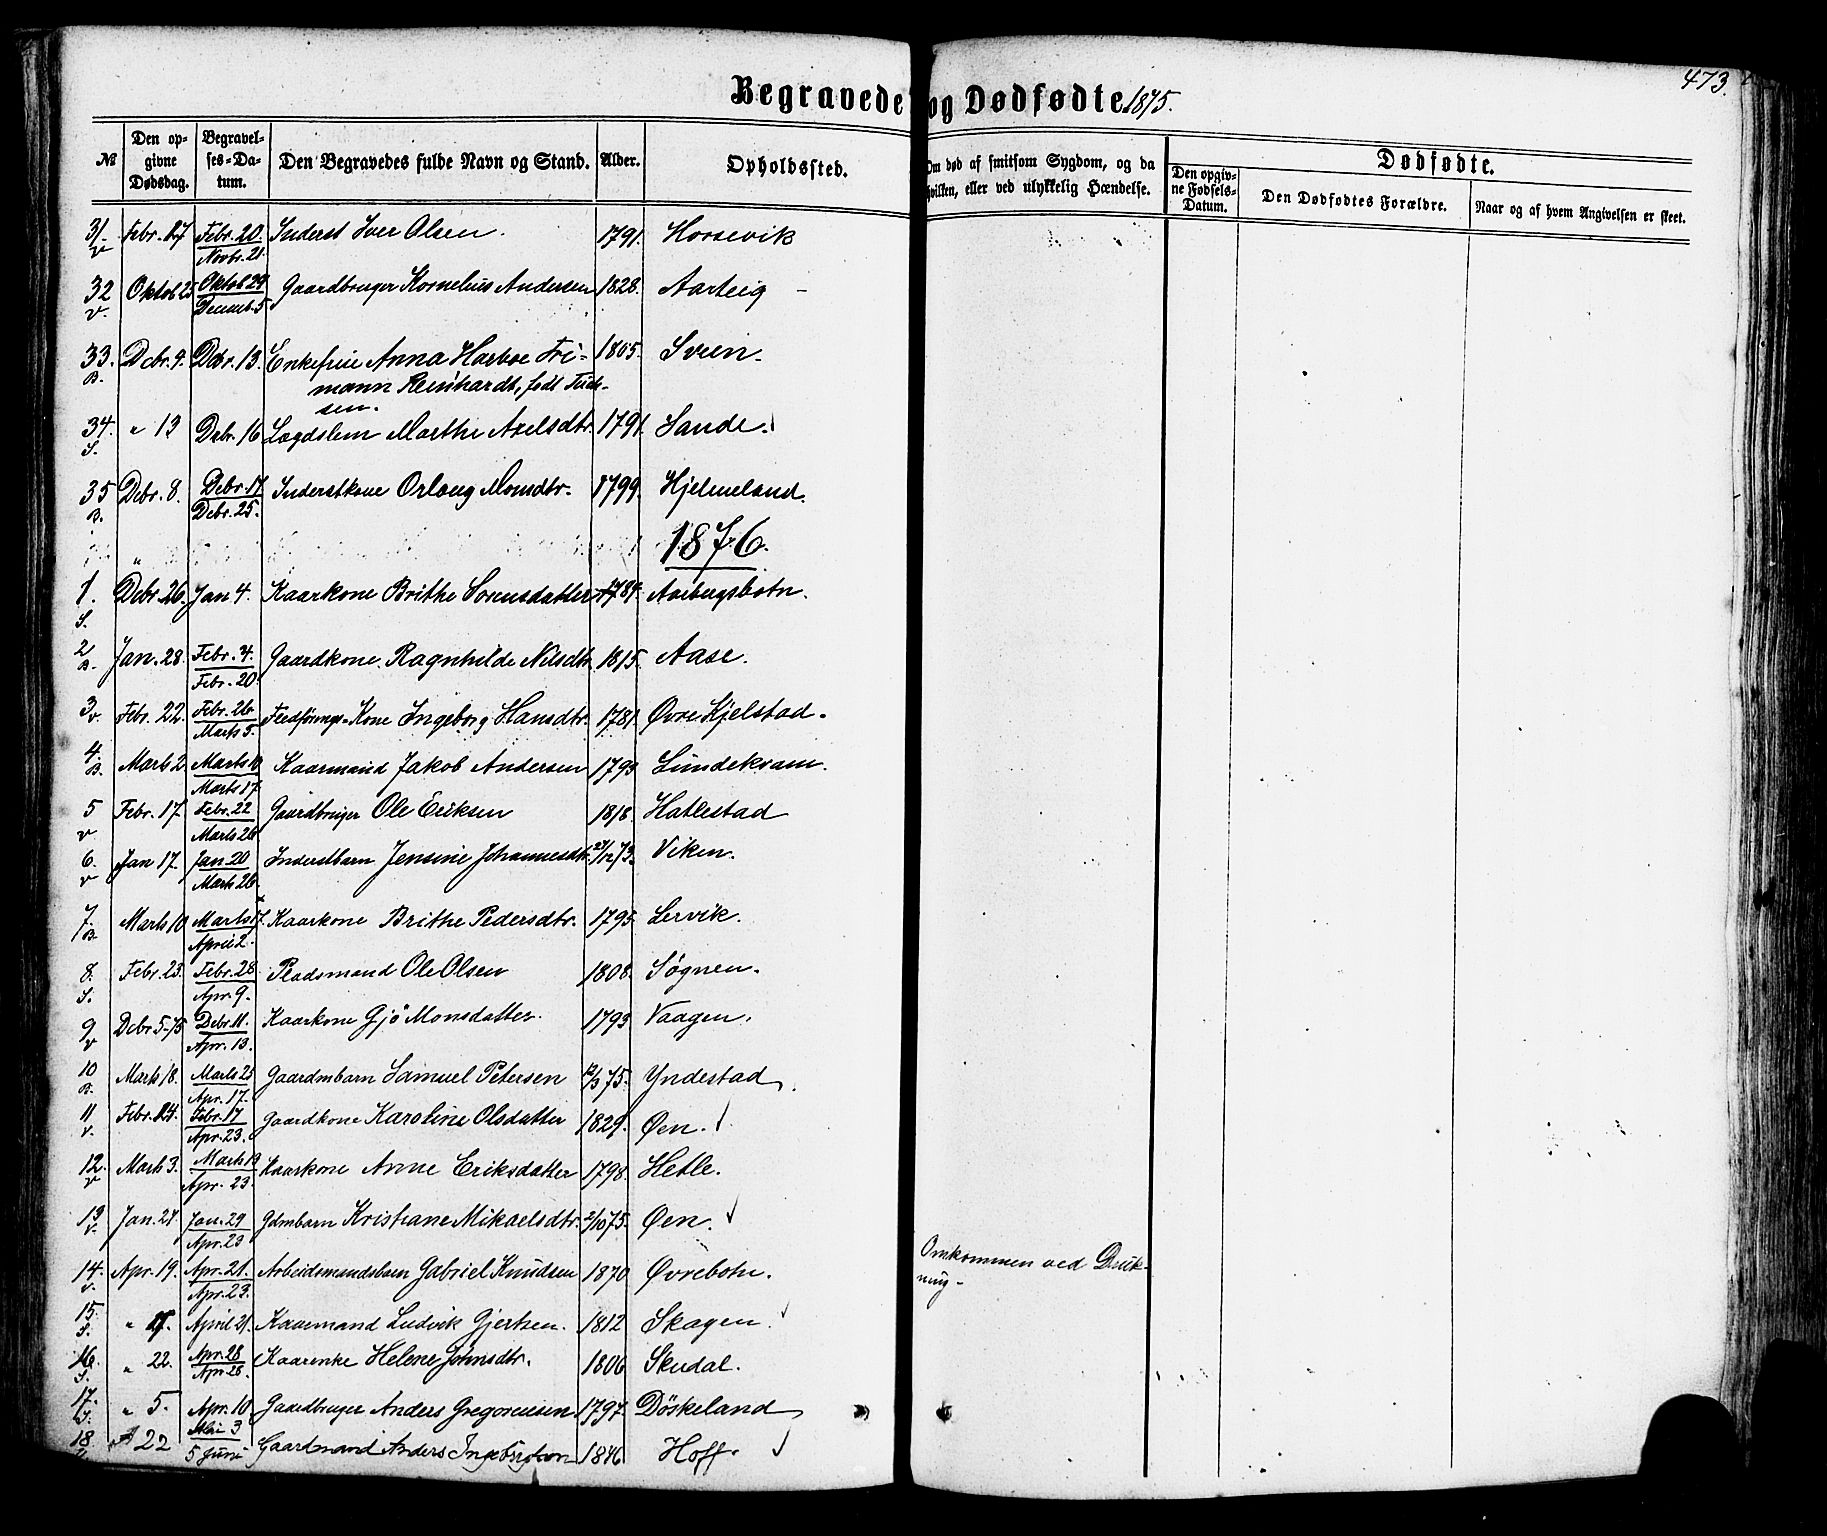 Begravede og Dødfødte 1875.
473.
No
Den opgivne Dødsdag.
Begravelses-Datum.
Den Begravedes fulde Navn og Stand.
Alder.
Opholdssted.
Om død af smitsom Sygdom, og da hvilken, eller ved ulykkelig Hændelse.
Dødfødte.
Den opgivne Fødsels-Datum.
Den Dødfødtes Forældre.
Naar og af hvem Angivelsen er skeet.
31. v Febr. 17 Febr. 20 Novbr. 21. Inderst Iver Olsen. 1791. Horsevik
32 v. Oktob 25 Oktob 29 Decemb. 5 Gaardbruger Kornelius Andersen 1828. Aarteig
33. B. Dcbr. 9. Dcbr. 13. Enkefrue Anna Harboe Fri- 1805. Svein.
mann Reinhardt, født Tuch-
sen.
34. S. " 13 Debr. 16 Lægdslem Marthe Axelsdtr. 1791. Sande.
35 B. Debr. 8. Debr. 17 Debr. 25. Inderstkone Orlaug Monsdtr. 1799. Hjelmeland.
1876.
1. S. Debr. 26. Jan 4. Kaarkone Brithe Sørensdatter 1789. Aarbergsbotn.
2 B. Jan. 28. Febr. 4. Febr. 20. Gaardkone. Ragnhilde Nilsdtr. 1815. Aase.
3 v. Febr. 22. Febr. 26 Marts 5. Fledførings-Kone Ingeborg Hansdtr. 1781. Øvre Kjelstad.
4. B. Marts 2 Marts 10 Marts 17. Kaarmand Jakob Andersen 1793. Lundekvam.
5 v. Febr. 17. Febr. 22 Marts 26 Gaardbruger Ole Eriksen 1818. Hatlestad
6. v Jan 17. Jan 20 Marts 26. Inderstbarn Jensine Johannesdtr. 27/12 73. Viken.
7. B. Marts 10 Marts 17. April 2. Kaarkone Brithe Pedersdtr. 1795. Lervik.
8. S. Febr. 23. Febr. 28 Apr. 9. Pladsmand Ole Olsen 1808. Søgnen.
9 v Debr. 5-75 Debr. 11. Apr. 13. Kaarkone Gjö Monsdatter. 1793. Vaagen.
10 B. Marts 18. Marts 25 Apr. 17. Gaardmbarn Samuel Petersen 12/3 75. Yndestad.
11 v. Febr. 14. Febr. 17 Apr. 23. Gaardkone Karoline Olsdatter 1829. Øen.
12. v Marts 3. Marts 13 Apr. 23. Kaarkone Anne Eriksdatter 1798. Hetle.
13 v. Jan. 27. Jan. 29 Apr. 23 Gdmbarn Kristiane Mikaelsdtr. 2/10 75. Øen.
14. v. Apr. 19. Apr. 21. Apr. 23. Arbeidsmandsbarn Gabriel Knudsen 1870 Øvrebotn. Omkommen ved Druk-
ning.
15. S. " April 21. Kaarmand Ludvik Gjertsen. 1812 Skagen.
16. S. " 22. Apr. 28 Apr. 28. Kaarenke Helene Johnsdtr. 1806 Skudal.
17. " 5. Apr. 10 Mai 3 Gaardbruger Anders Gregoriussen 1797. Döskeland
18. 22 5 Juni Gaardmand Anders Ingebrigtson 1846 Hoff.